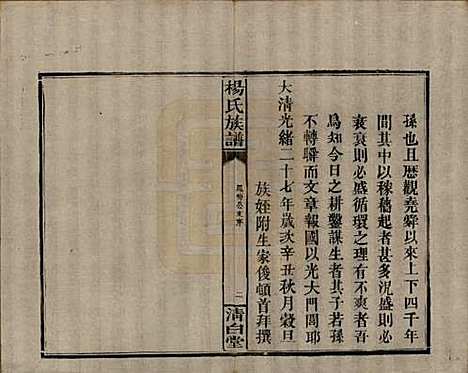 孫也且歷觀堯舜以來上下四千年
間其中以稼穡起者甚多況盛則必
衰衰則必盛循環之理有不爽者焉
爲知今日之耕鑿謀生者其子若孫
不轉瞬而文章報國以光大門閭耶
大清光緒二十七年歲次辛丑秋月穀旦
族姪附生家俊頓首拜撰
楊氏族譜
卷末序
二
清白堂